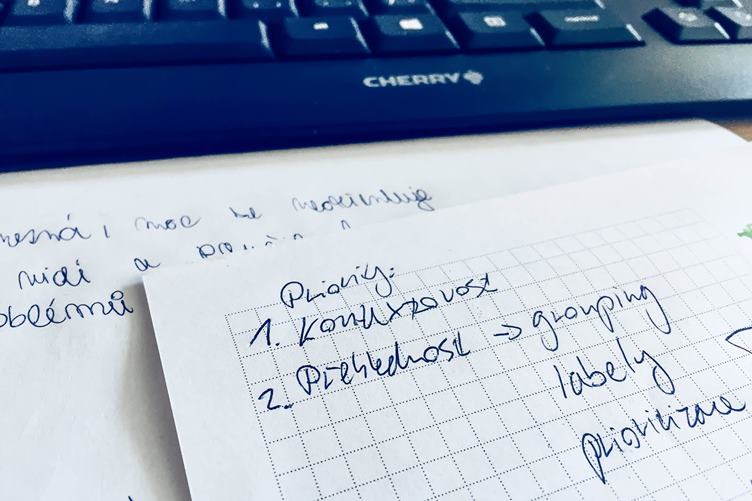 CHERRY
moc se neorientuje
vidí a
oblémů
Priority:
1. Kontextovost
2. Přehlednost → grouping
labely
prioritizace